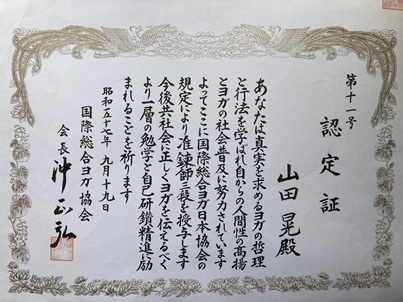 第十一号
認定証
山田 晃殿
あなたは真実を求めるヨガの哲理
と行法を学ばれ自からの人間性の高揚
とヨガの社会普及に努力されています
よってここに国際総合ヨガ日本協会の
規定により准錬師三段を授与します
今後共社会に正しくヨガを伝えるべく
より一層の勉学と自己研鑽精進に励
まれることを祈ります
昭和五十七年 九月十九日
国際総合ヨガ協会
会長 沖正弘